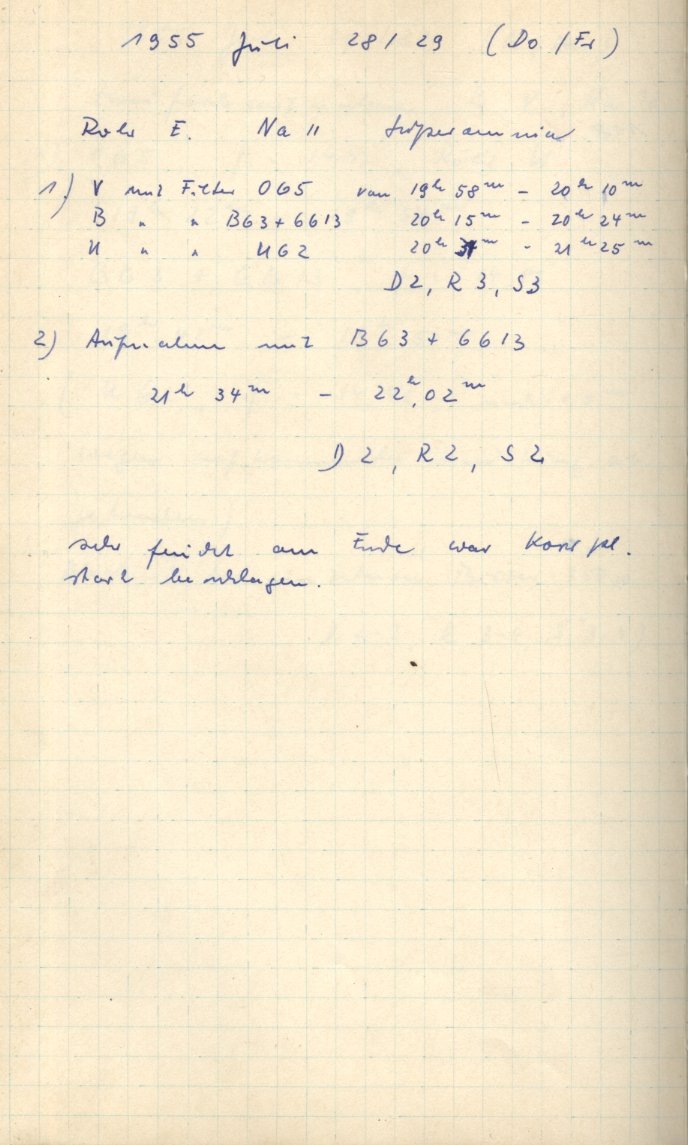 1955 Juli 28/29 (Do/Fr)
Rohr E. Na II
1.) V mit Filter OG5 von 19h 58m - 20h 10m
B " " BG3+GG13 20h 15m - 20h 24m
U " " UG2 20h m - 21h 25m
D2, R3, S3
2) Aufnahme mit BG3 + GG13
21h 34m - 22h 02m
D2, R2, S2
sehr feucht am Ende war Korr pl.
stark beschlagen.